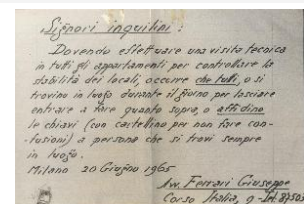 Signori inquilini:
Dovendo effettuare una visita tecnica
in tutti gli appartamenti per controllare la
stabilità dei locali, occorre che tutti, o si
trovino in luogo durante il giorno per lasciare
entrare a fare quanto sopra, o affidino
le chiavi (con cartellino per non fare con-
fusioni) a persona che si trovi sempre
in luogo.
Milano 20 Giugno 1965
Avv. Ferrari Giuseppe
Corso Italia, 9 -